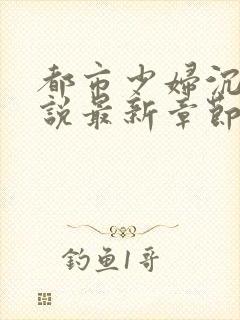 都市少婦沉
說最新章節
釣魚1哥